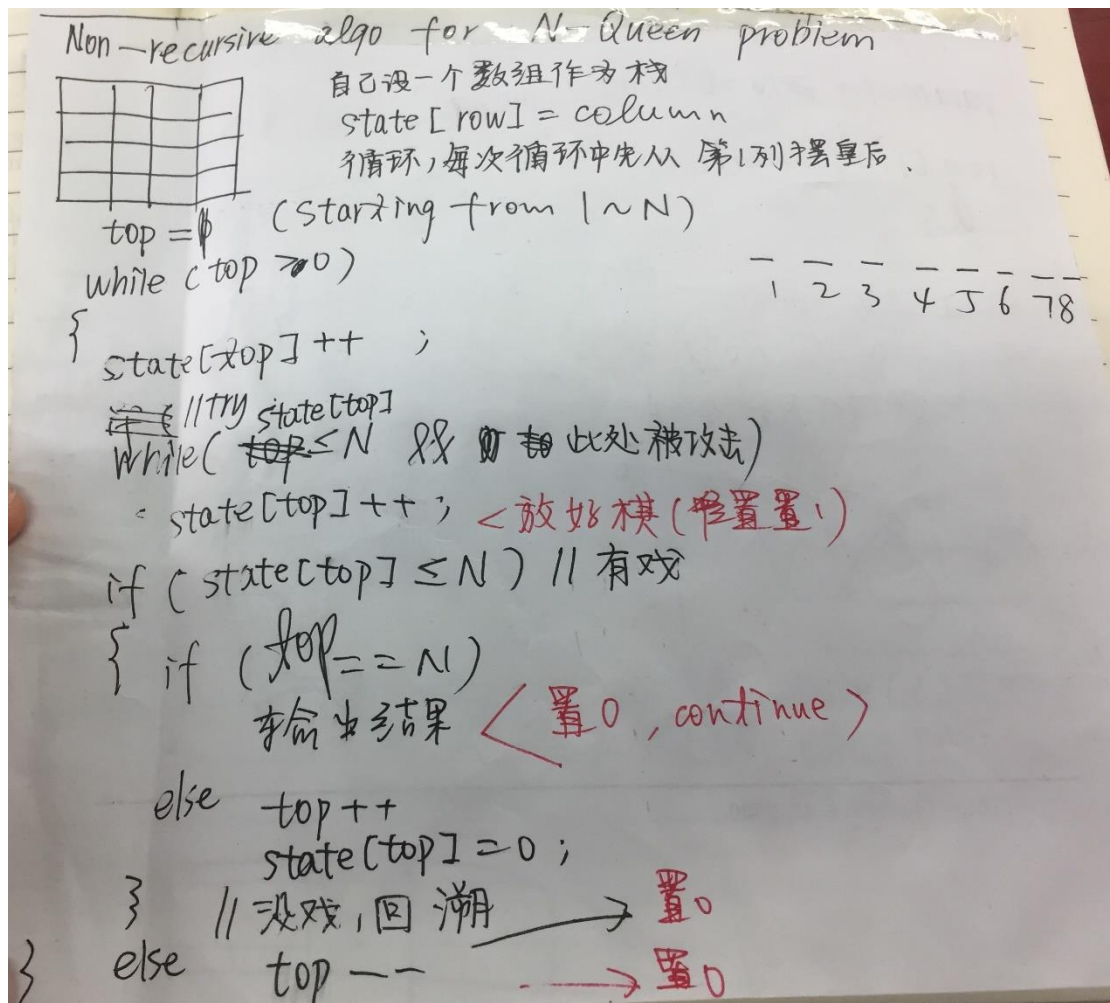 Non-recursive algo for N-Queen problem
自己设一个数组作为栈
state[row] = column
循环,每次循环中先从 第1列摆皇后.
top = (starting from 1~N)
while (top > 0)
1 2 3 4 5 6 7 8
{
state[top]++ ;
//try state[top]
while( ≤ N && 此处被攻击)
state[top]++; <放好棋(置1)
if (state[top] ≤ N) // 有戏
{ if (top == N)
输出结果 <置0, continue>
else top++
state[top] = 0;
} // 没戏,回溯 → 置0
} else top-- → 置0